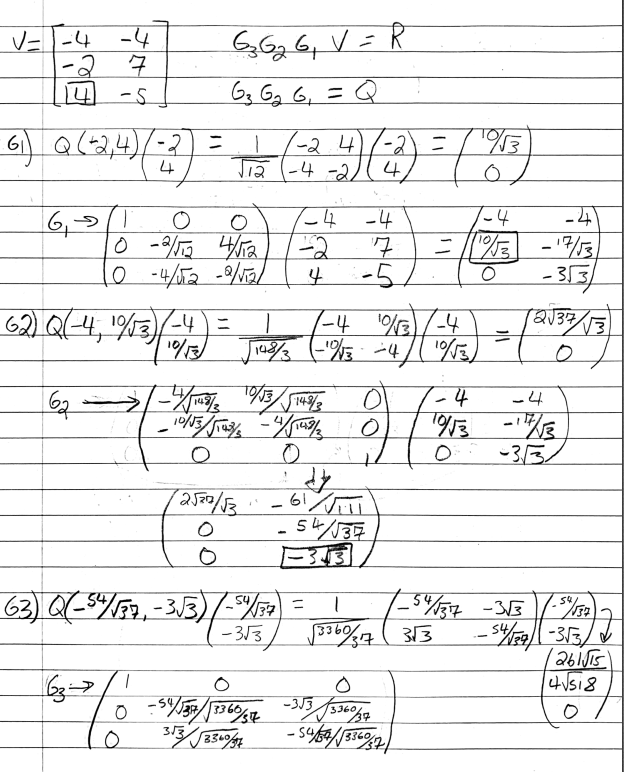 V = [ -4 -4      G₃G₂G₁ V = R
-2 7
[4] -5 ]      G₃G₂G₁ = Q
G1) Q(-2,4) (-2 / 4) = 1/√12 (-2 4 / -4 -2) (-2 / 4) = (10/√3 / 0)
G₁ → (1 0 0      (-4 -4      (-4 -4
0 -2/√12 4/√12      -2 7      = [10/√3] -17/√3
0 -4/√12 -2/√12)      4 -5)      0 -3√3)
G2) Q(-4, 10/√3) (-4 / 10/√3) = 1/√148/3 (-4 10/√3 / -10/√3 -4) (-4 / 10/√3) = (2√37/√3 / 0)
G₂ → (-4/√148/3 10/√3/√148/3 0      (-4 -4
-10/√3/√148/3 -4/√148/3 0      10/√3 -17/√3
0 0 1)      0 -3√3)
(2√37/√3 -61/√111
0 -54/√37
0 [-3√3])
G3) Q(-54/√37, -3√3) (-54/√37 / -3√3) = 1/√3360/37 (-54/√37 -3√3 / 3√3 -54/√37) (-54/√37 / -3√3)
(261√15 / 4√518
0)
G₃ → (1 0 0
0 -54/√37/√3360/37 -3√3/√3360/37
0 3√3/√3360/37 -54/√37/√3360/37)